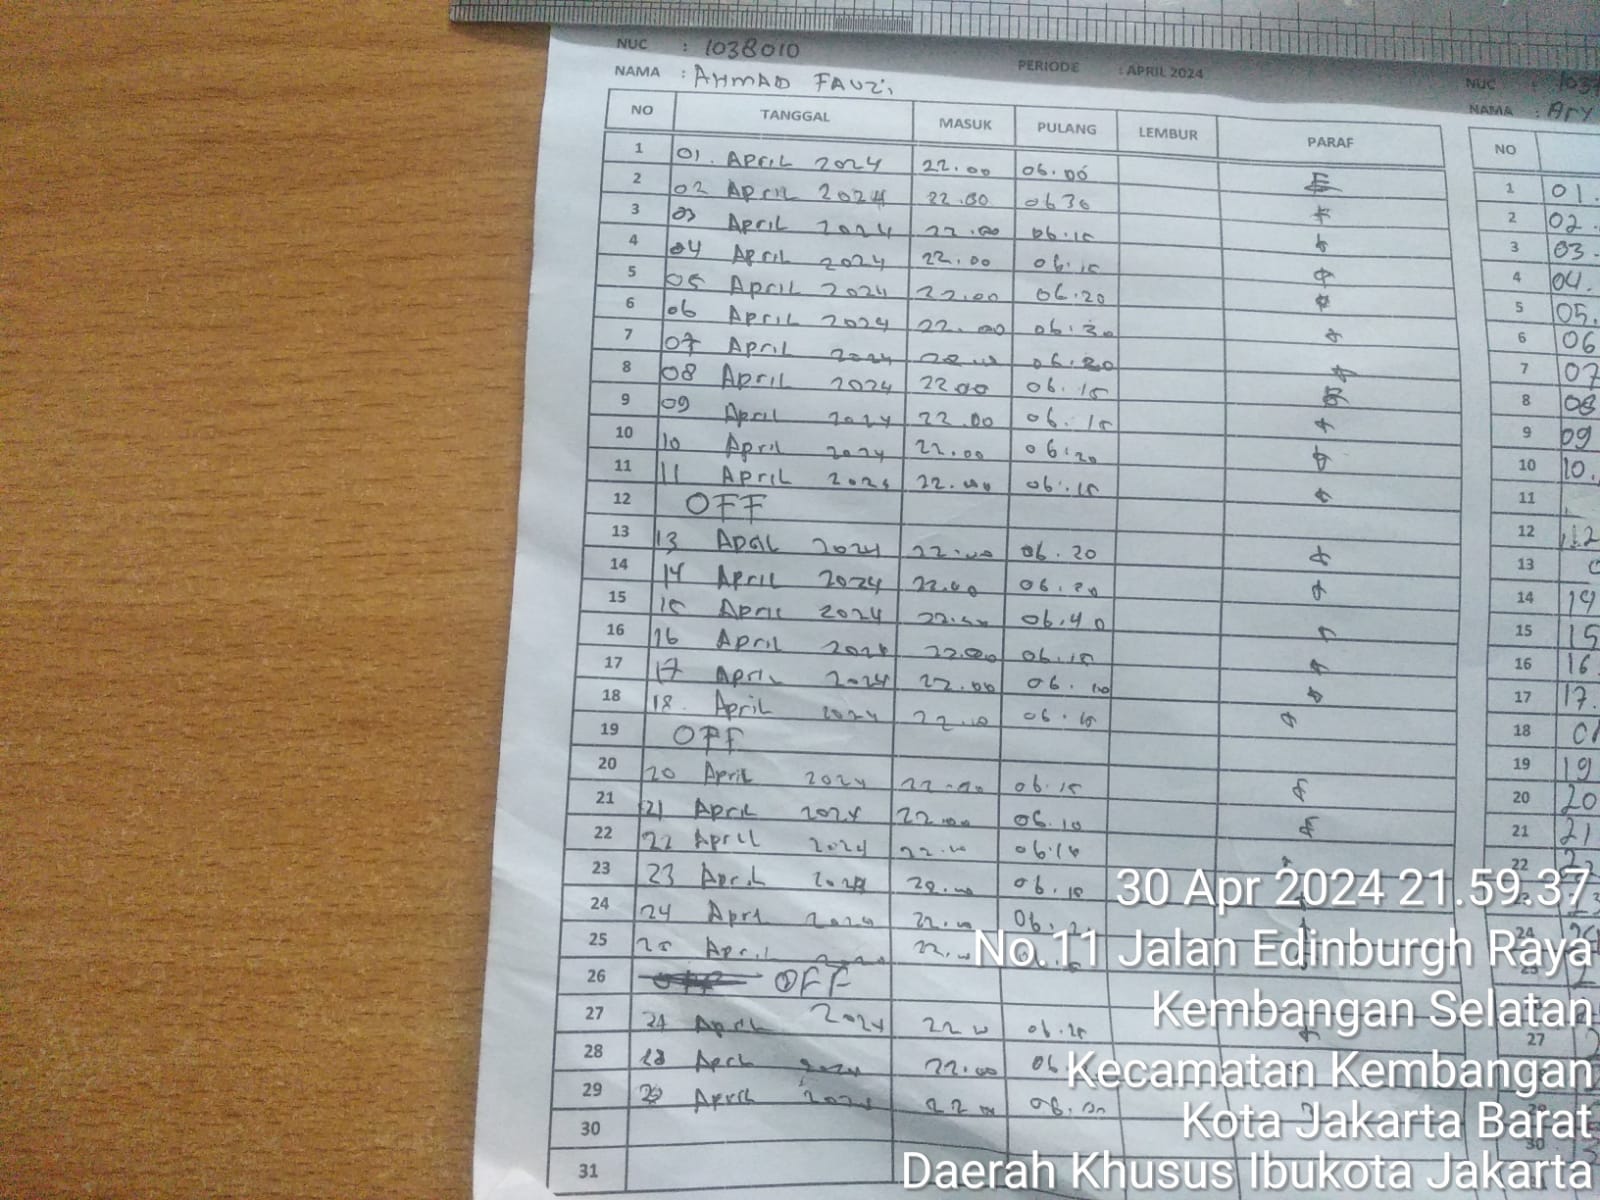 NUC : 1038010
PERIODE : APRIL 2024
NUC : 1037
NAMA : AHMAD FAUZI
NAMA : Ary
NO TANGGAL MASUK PULANG LEMBUR PARAF
1 01. April 2024 22.00 06.00
2 02 April 2024 22.00 0630
3 03 April 2024 22.00 06.15
4 04 April 2024 22.00 06.15
5 05 April 2024 22.00 06.20
6 06 April 2024 22.00 06.30
7 07 April 2024 06.20
8 08 April 2024 22.00 06.15
9 09 April 2024 22.00 06.15
10 10 April 2024 22.00 06:20
11 11 April 2024 22.00 06.15
12 OFF
13 13 April 2024 22.00 06.20
14 14 April 2024 22.00 06.20
15 15 April 2024 06.40
16 16 April 2024 22.00 06.15
17 17 April 2024 22.00 06.10
18 18. April 2024 06.15
19 OFF
20 20 April 2024 22.00 06.15
21 21 April 2024 22.00 06.10
22 22 April 2024 06.
23 23 April 2024 06.10
24 24 April 2024 06.
25 25 April
26 OFF
27 April 2024 06.
28 28 April 2024 22.00 06
29 April 2024 22 06.
30
31
NO
1 01.
2 02.
3 03.
4 04.
5 05.
6 06
7 07
8 08
9 09
10 10.
11
12 12
13
14 14
15 15
16 16.
17 17.
18
19 19
20 20
21 21
22
27
30 Apr 2024 21.59.37
No.11 Jalan Edinburgh Raya
Kembangan Selatan
Kecamatan Kembangan
Kota Jakarta Barat
Daerah Khusus Ibukota Jakarta